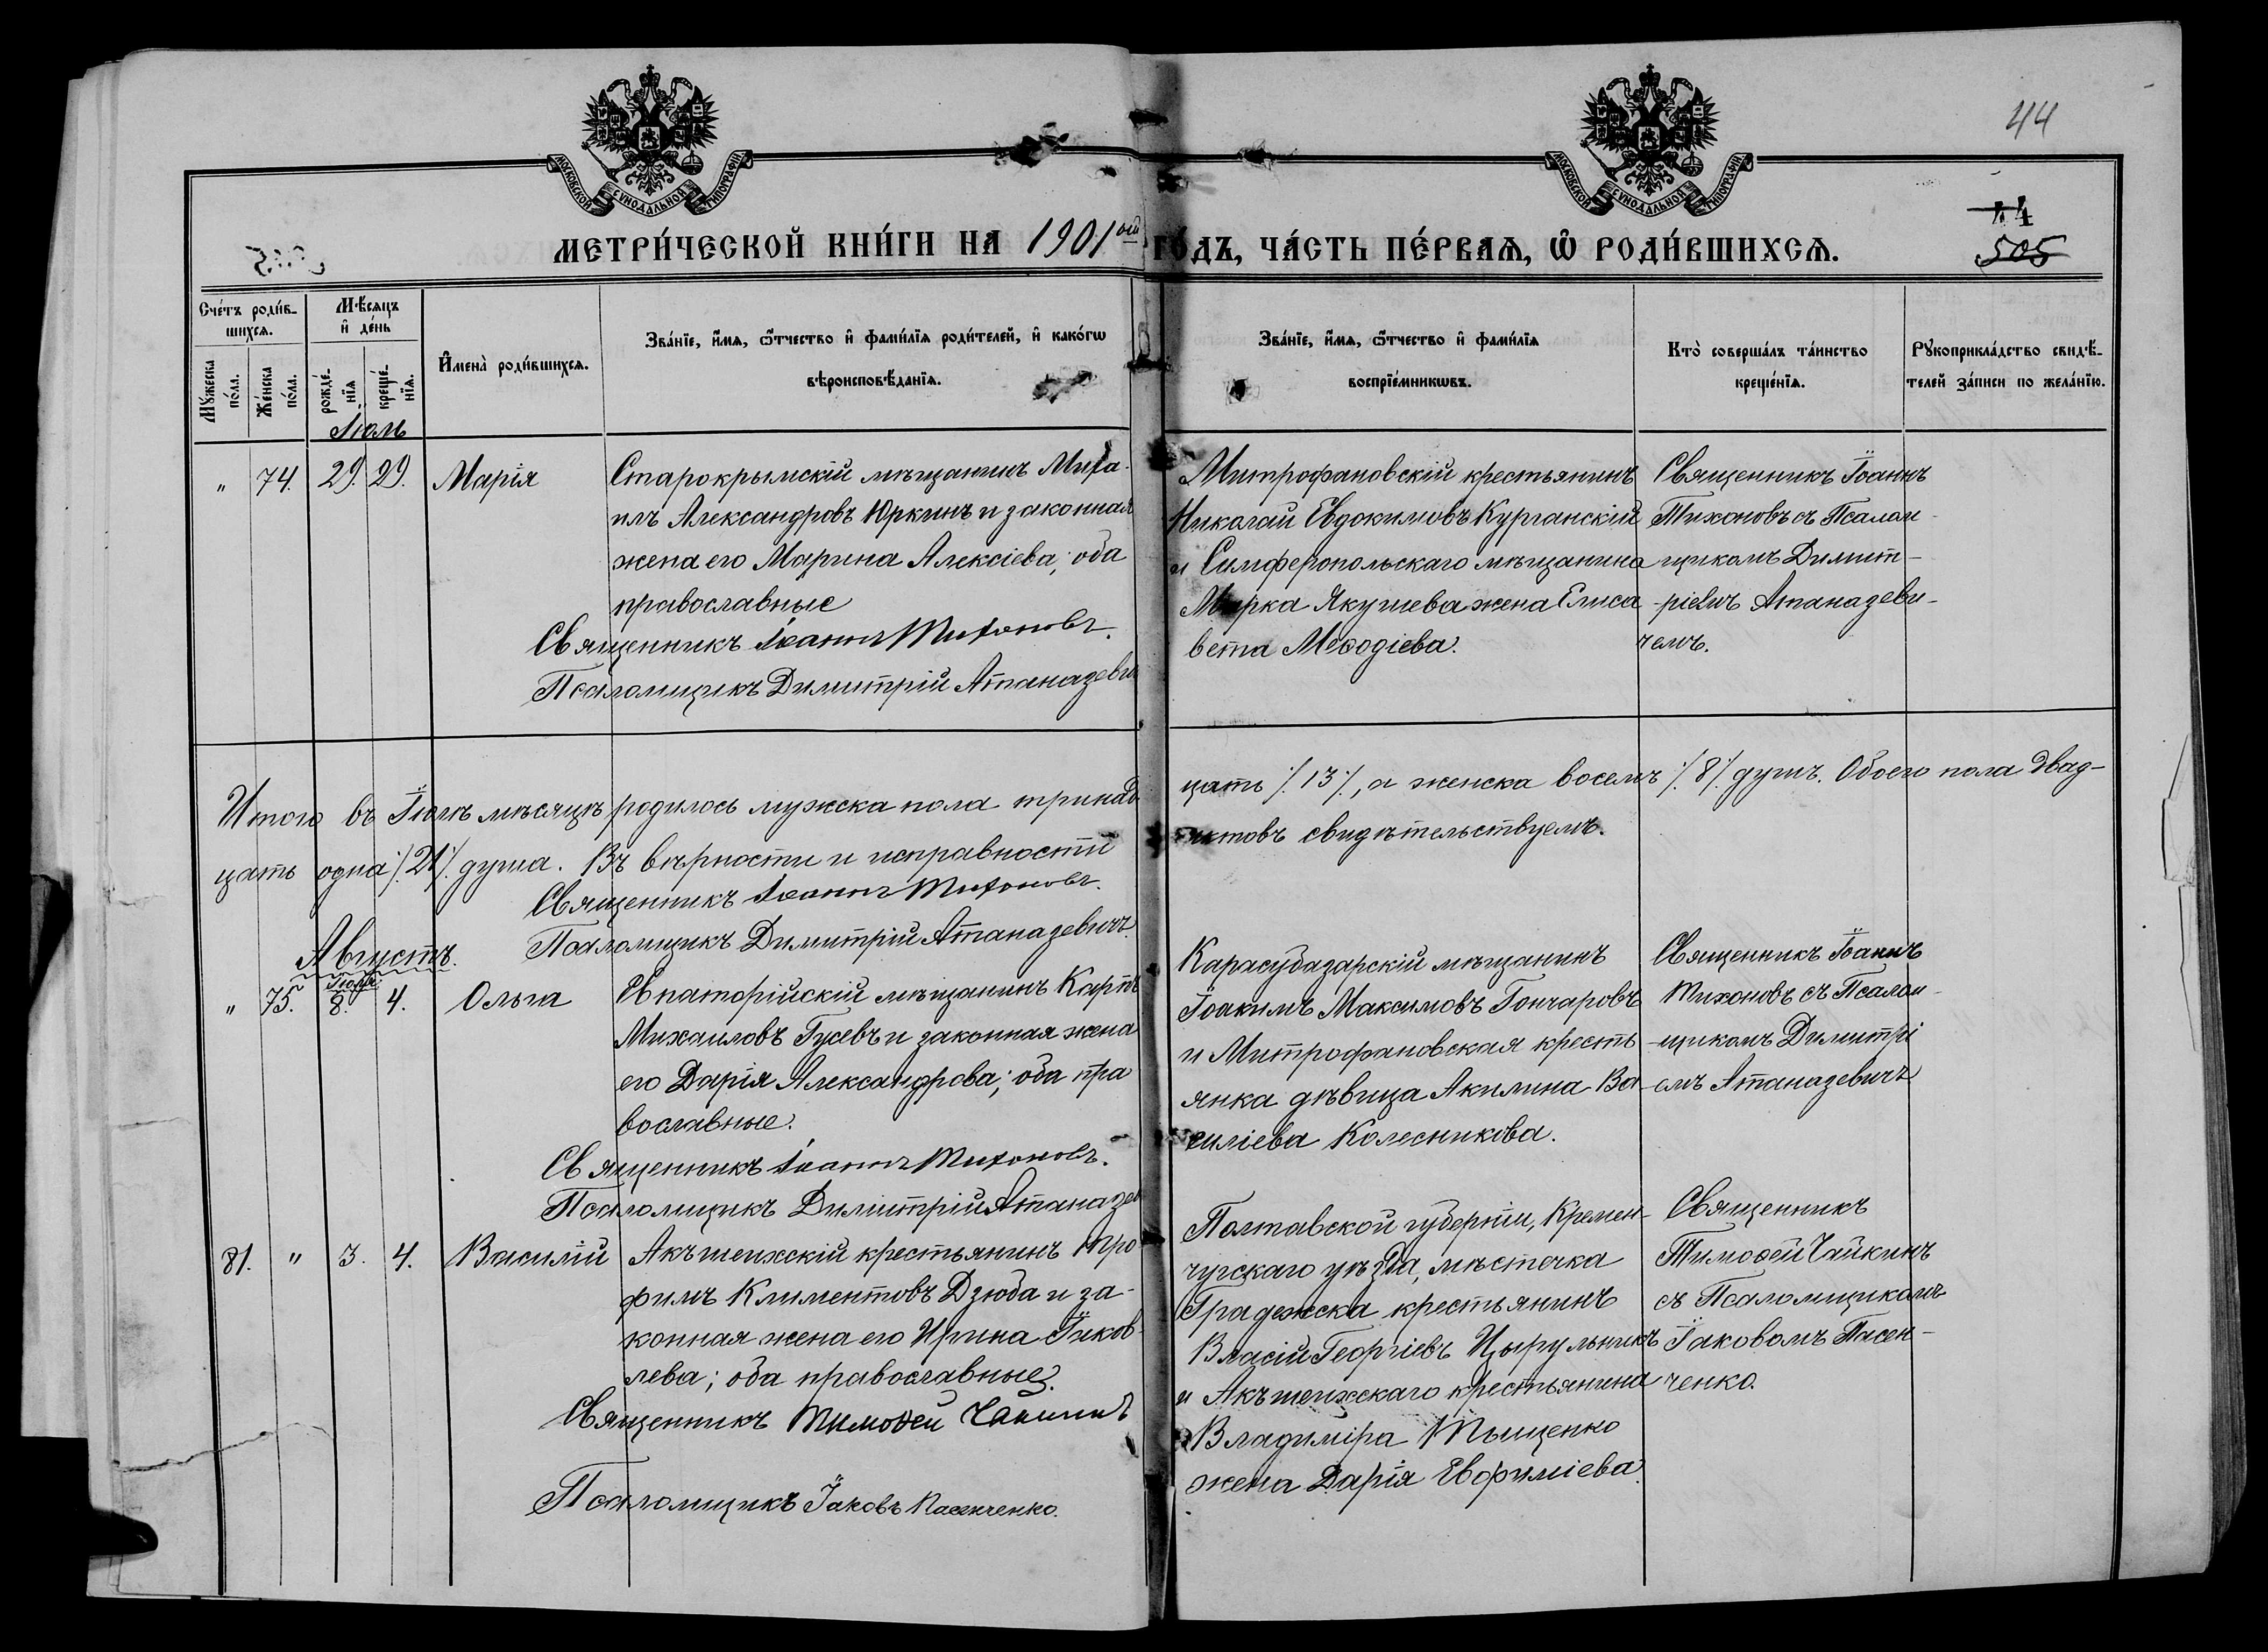 44
44
505
МОСКОВСКОЙ СѴНОДАЛЬНОЙ ТИПОГРАФІИ
МОСКОВСКОЙ СѴНОДАЛЬНОЙ ТИПОГРАФІИ
МЕТРИ́ЧЕСКОЙ КНИ́ГИ НА 1901ый ГО́ДЪ, ЧА́СТЬ ПЕ́РВАѦ, Ѡ҆ РОДИ́ВШИХСѦ.
Сче́тъ роди́в-
шихсѧ.
Мꙋ́жеска по́ла.
Же́нска по́ла.
Мѣ́сѧцъ
и҆ де́нь
рожде́-
нїѧ
креще́-
нїѧ.
И҆мена̀ роди́вшихсѧ.
Зва́нїе, и҆́мѧ, ѻ҆́тчество и҆ фами́лїѧ роди́телей, и҆ како́гѡ
вѣроисповѣ́данїѧ.
Зва́нїе, и҆́мѧ, ѻ҆́тчество и҆ фами́лїѧ
воспрїе́мникѡвъ.
Кто̀ соверша́лъ та́инство
креще́нїѧ.
Рꙋкоприкла́дство свидѣ́-
телей за́писи по жела́нїю.
Іюль
" 74. 29. 29. Марія
Старокрымскій мѣщанинъ Миха-
илъ Александровъ Юркинъ и законная
жена его Марина Алексіева; оба
православные
Священникъ Іоаннъ Тихоновъ.
Псаломщикъ Димитрій Атаназеви
Митрофановскій крестьянинъ
Николай Евдокимовъ Курганскій
и Симферопольскаго мѣщанина
Марка Якушева жена Елиса
вета Меѳодіева.
Священникъ Іоаннъ
Тихоновъ съ Псалом-
щикомъ Димит-
ріемъ Атаназеви-
чемъ.
Итого въ Іюлѣ мѣсяцѣ родилось мужска пола тринад
цать /.13./, а женска восемь /.8./ душъ. Обоего пола двад-
цать одна /.21./ душа. Въ вѣрности и исправности
актовъ свидѣтельствуемъ.
Священникъ Іоаннъ Тихоновъ.
Псаломщикъ Димитрій Атаназевичъ
Августъ.
Іюля
" 75. 8. 4. Ольга
Евпаторійскій мѣщанинъ Карпъ
Михаиловъ Гусевъ и законная жена
его Дарія Александрова; оба пра
вославные.
Священникъ Іоаннъ Тихоновъ.
Псаломщикъ Димитрій Атаназев
Карасубазарскій мѣщанинъ
Іоакимъ Максимовъ Гончаровъ
и Митрофановская кресть
янка дѣвица Акилина Ва-
силіева Колесникова.
Священникъ Іоаннъ
Тихоновъ съ Псалом-
щикомъ Димитрі
емъ Атаназевичъ
81. " 3. 4. Василій
Акъшеихскій крестьянинъ Тро-
фимъ Климентовъ Дзюба и за-
конная жена его Ирина Іаков-
лева; оба православные.
Священникъ Тимоѳей Чайкинъ
Псаломщикъ Іаковъ Пасенченко.
Полтавской губерніи, Кремен-
чугскаго уѣзда, мѣстечка
Градежска крестьянинъ
Власій Георгіевъ Цырульникъ
и Акъшеихскаго крестьянина
Владиміра Тыщенко
жена Дарія Евфиміева.
Священникъ
Тимоѳей Чайкинъ
съ Псаломщикомъ
Іаковомъ Пасен-
ченко.